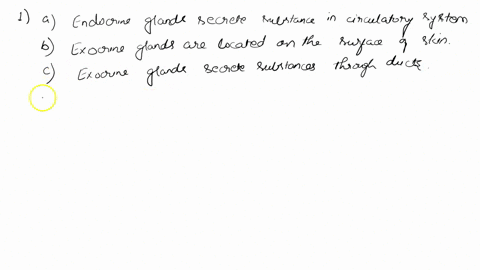 1) a) Endocrine glands secrete substance in circulatory system
b) Exocrine glands are located on the surface of skin.
c) Exocrine glands secrete substances through ducts.